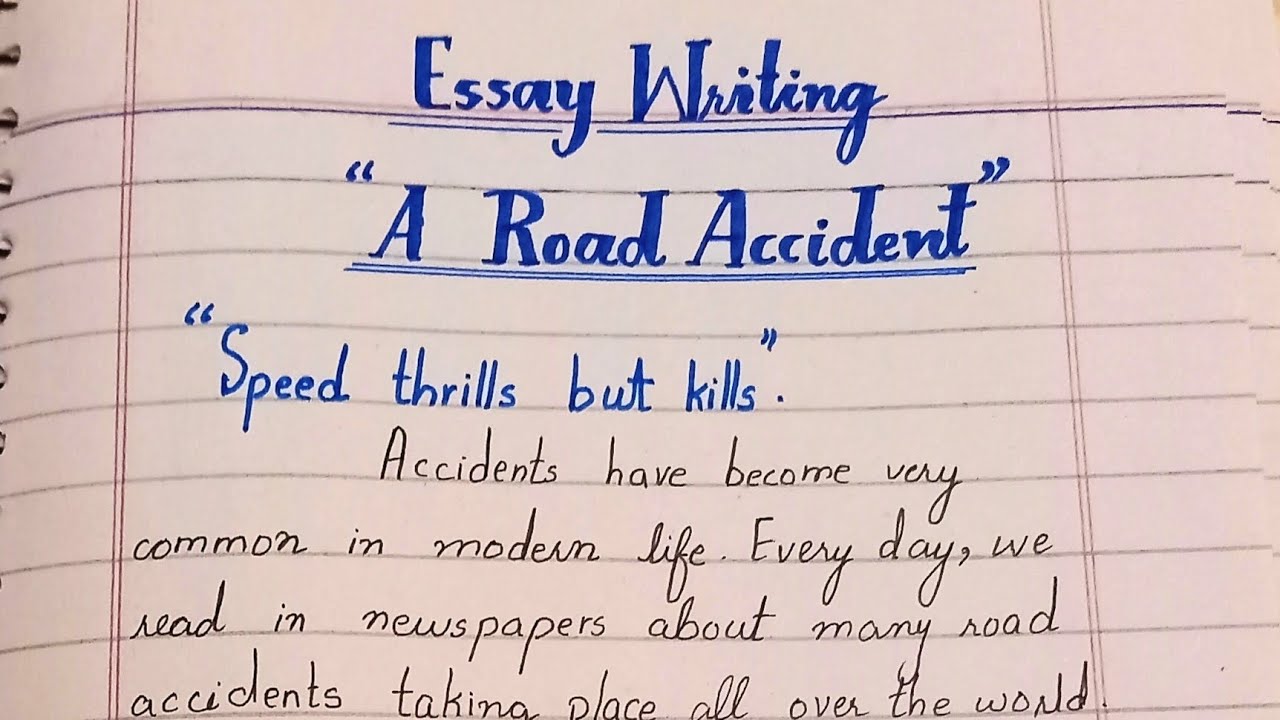 Essay Writing
"A Road Accident"
"Speed thrills but kills".
Accidents have become very
common in modern life. Every day, we
read in newspapers about many road
accidents taking place all over the world.